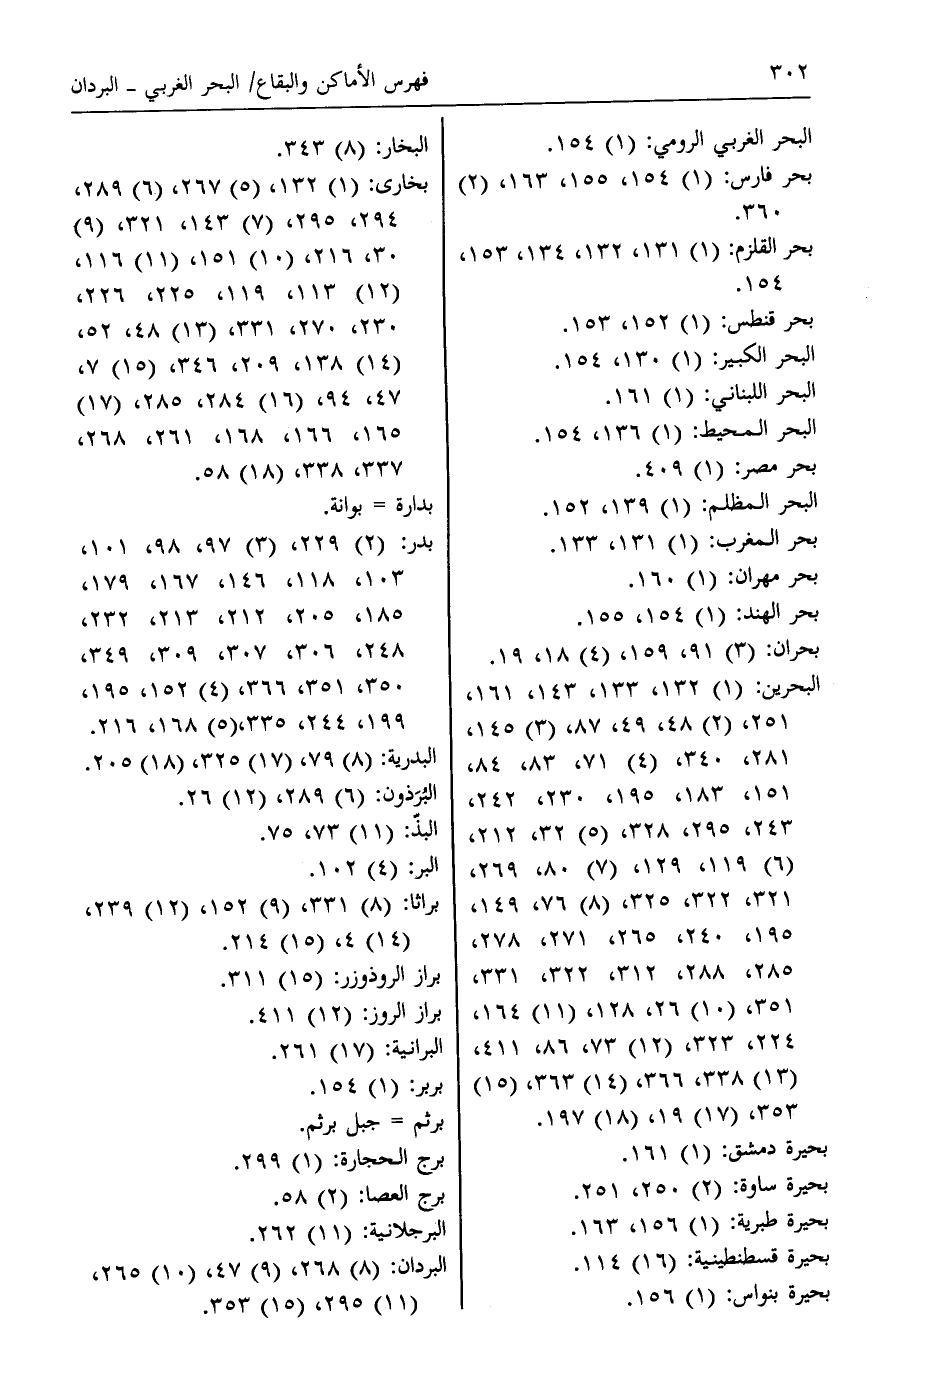 ٣٠٢
فهرس الأماكن والبقاع/ البحر الغربي - البردان
البحر الغربي الرومي: (١) ١٥٤.
بحر فارس: (١) ١٥٤، ١٥٥، ١٦٣، (٢)
٣٦٠.
بحر القلزم: (١) ١٣١، ١٣٢، ١٣٤، ١٥٣،
١٥٤.
بحر قنطس: (١) ١٥٢، ١٥٣.
البحر الكبير: (١) ١٣٠، ١٥٤.
البحر اللبناني: (١) ١٦١.
البحر المحيط: (١) ١٣٦، ١٥٤.
بحر مصر: (١) ٤٠٩.
البحر المظلم: (١) ١٣٩، ١٥٢.
بحر المغرب: (١) ١٣١، ١٣٣.
بحر مهران: (١) ١٦٠.
بحر الهند: (١) ١٥٤، ١٥٥.
بحران: (٣) ٩١، ١٥٩، (٤) ١٨، ١٩.
البحرين: (١) ١٣٢، ١٣٣، ١٤٣، ١٦١،
٢٥١، (٢) ٤٨، ٤٩، ٨٧، (٣) ١٤٥،
٢٨١، ٣٤٠، (٤) ٧١، ٨٣، ٨٤،
١٥١، ١٨٣، ١٩٥، ٢٣٠، ٢٤٢،
٢٤٣، ٢٩٥، ٣٢٨، (٥) ٣٢، ٢١٢،
(٦) ١١٩، ١٢٩، (٧) ٨٠، ٢٦٩،
٣٢١، ٣٢٢، ٣٢٥، (٨) ٧٦، ١٤٩،
١٩٥، ٢٤٠، ٢٦٥، ٢٧١، ٢٧٨،
٢٨٥، ٢٨٨، ٣١٢، ٣٢٢، ٣٣١،
٣٥١، (١٠) ٢٦، ١٢٨، (١١) ١٦٤،
٢٢٤، ٣٢٣، (١٢) ٧٣، ٨٦، ٤١١،
(١٣) ٣٣٨، ٣٦٦، (١٤) ٣٦٣، (١٥)
٣٥٣، (١٧) ١٩، (١٨) ١٩٧.
بحيرة دمشق: (١) ١٦١.
بحيرة ساوة: (٢) ٢٥٠، ٢٥١.
بحيرة طبرية: (١) ١٥٦، ١٦٣.
بحيرة قسطنطينية: (١٦) ١١٤.
بحيرة بنواس: (١) ١٥٦.
البخار: (٨) ٣٤٣.
بخارى: (١) ١٣٢، (٥) ٢٦٧، (٦) ٢٨٩،
٢٩٤، ٢٩٥، (٧) ١٤٣، ٣٢١، (٩)
٣٠، ٢١٦، (١٠) ١٥١، (١١) ١١٦،
(١٢) ١١٣، ١١٩، ٢٢٥، ٢٢٦،
٢٣٠، ٢٧٠، ٣٣١، (١٣) ٤٨، ٥٢،
(١٤) ١٣٨، ٢٠٩، ٣٤٦، (١٥) ٧،
٤٧، ٩٤، (١٦) ٢٨٤، ٢٨٥، (١٧)
١٦٥، ١٦٦، ١٦٨، ٢٦١، ٢٦٨،
٣٣٧، ٣٣٨، (١٨) ٥٨.
بدارة = بوانة.
بدر: (٢) ٢٢٩، (٣) ٩٧، ٩٨، ١٠١،
١٠٣، ١١٨، ١٤٦، ١٦٧، ١٧٩،
١٨٥، ٢٠٥، ٢١٢، ٢١٣، ٢٣٢،
٢٤٨، ٣٠٦، ٣٠٧، ٣٠٩، ٣٤٩،
٣٥٠، ٣٥١، ٣٦٦، (٤) ١٥٢، ١٩٥،
١٩٩، ٢٤٤، ٣٣٥،(٥) ١٦٨، ٢١٦.
البدرية: (٨) ٧٩، (١٧) ٣٢٥، (١٨) ٢٠٥.
البُرَذون: (٦) ٢٨٩، (١٢) ٢٦.
البذّ: (١١) ٧٣، ٧٥.
البر: (٤) ١٠٢.
براثا: (٨) ٣٣١، (٩) ١٥٢، (١٢) ٢٣٩،
(١٤) ٤، (١٥) ٢١٤.
براز الروذوزر: (١٥) ٣١١.
براز الروز: (١٢) ٤١١.
البرانية: (١٧) ٢٦١.
بربر: (١) ١٥٤.
برثم = جبل برثم.
برج الحجارة: (١) ٢٩٩.
برج العصا: (٢) ٥٨.
البرجلانية: (١١) ٢٦٢.
البردان: (٨) ٢٦٨، (٩) ٤٧، (١٠) ٢٦٥،
(١١) ٢٩٥، (١٥) ٣٥٣.